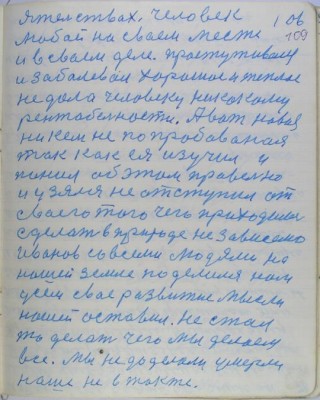 ятельствах. Человек 106
любой на своем месте 109
и в своем деле. простуживаем
и заболевал хорошое и теплое
не дала человеку никакому
рентабельности. А вот новая
ни кем не попробованая
так как ея изучил и
понял об этом правельно
и узялся не отступил от
своего того чего приходился
сделат в природе не зависемо
Иванов со всеми людями на
нашей земле поделился нам
усем свое развитие мысли
нашей оставил. Не стал
то делат чего мы делаем
все. Мы не доделали умерли
наше не в такте.